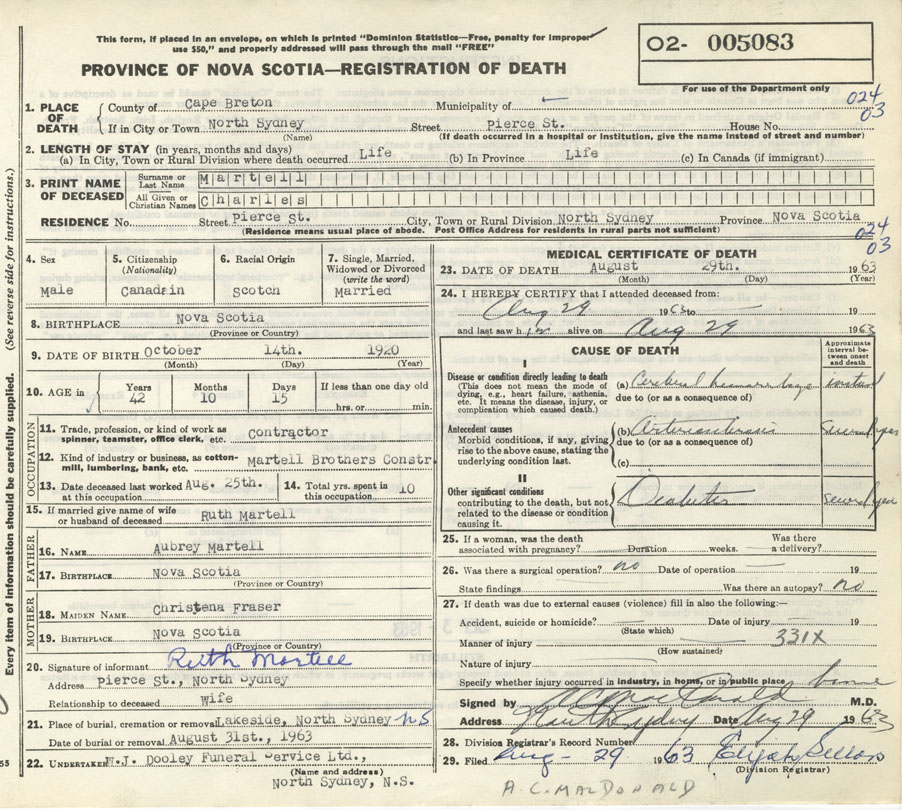 This form, if placed in an envelope, on which is printed "Dominion Statistics—Free, penalty for improper
use $50," and properly addressed will pass through the mail "FREE"
PROVINCE OF NOVA SCOTIA—REGISTRATION OF DEATH
02- 005083
For use of the Department only
024
03
1. PLACE OF DEATH
County of Cape Breton Municipality of
If in City or Town North Sydney Street Pierce St. House No.
(Name) (If death occurred in a hospital or institution, give the name instead of street and number)
2. LENGTH OF STAY (in years, months and days)
(a) In City, Town or Rural Division where death occurred Life (b) In Province Life (c) In Canada (if immigrant)
3. PRINT NAME OF DECEASED
Surname or Last Name Martell
All Given or Christian Names Charles
RESIDENCE No. Street Pierce St. City, Town or Rural Division North Sydney Province Nova Scotia
(Residence means usual place of abode. Post Office Address for residents in rural parts not sufficient)
024
03
(See reverse side for instructions.)
Every item of information should be carefully supplied.
55
4. Sex
Male
5. Citizenship (Nationality)
Canadain
6. Racial Origin
Scotch
7. Single, Married, Widowed or Divorced (write the word)
Married
8. BIRTHPLACE Nova Scotia
(Province or Country)
9. DATE OF BIRTH October 14th. 1920
(Month) (Day) (Year)
10. AGE in Years 42 Months 10 Days 15 If less than one day old hrs. or min.
OCCUPATION
11. Trade, profession, or kind of work as spinner, teamster, office clerk, etc. Contractor
12. Kind of industry or business, as cotton-mill, lumbering, bank, etc. Martell Brothers Constr.
13. Date deceased last worked at this occupation Aug. 25th.
14. Total yrs. spent in this occupation 10
15. If married give name of wife or husband of deceased Ruth Martell
FATHER
16. NAME Aubrey Martell
17. BIRTHPLACE Nova Scotia
(Province or Country)
MOTHER
18. MAIDEN NAME Christena Fraser
19. BIRTHPLACE Nova Scotia
(Province or Country)
20. Signature of informant Ruth Martell
Address pierce St., North Sydney
Relationship to deceased Wife
21. Place of burial, cremation or removal Lakeside, North Sydney NS
Date of burial or removal August 31st., 1963
22. UNDERTAKER W.J. Dooley Funeral Service Ltd.,
(Name and address)
North Sydney, N.S.
MEDICAL CERTIFICATE OF DEATH
23. DATE OF DEATH August 29th. 1963
(Month) (Day) (Year)
24. I HEREBY CERTIFY that I attended deceased from:
Aug 29 1963 to 19
and last saw him alive on Aug 29 1963
CAUSE OF DEATH
Approximate interval between onset and death
I
Disease or condition directly leading to death
(This does not mean the mode of dying, e.g., heart failure, asthenia, etc. It means the disease, injury, or complication which caused death.)
(a) Cerebral hemorrhage
due to (or as a consequence of)
Antecedent causes
Morbid conditions, if any, giving rise to the above cause, stating the underlying condition last.
(b) several years
due to (or as a consequence of)
(c)
II
Other significant conditions
contributing to the death, but not related to the disease or condition causing it.
Diabetes several years
25. If a woman, was the death associated with pregnancy? Duration weeks. Was there a delivery?
26. Was there a surgical operation? no Date of operation 19
State findings Was there an autopsy? no
27. If death was due to external causes (violence) fill in also the following:—
Accident, suicide or homicide? Date of injury 19
(State which)
Manner of injury 331X
(How sustained)
Nature of injury
Specify whether injury occurred in industry, in home, or in public place home
Signed by A C MacDonald M.D.
Address North Sydney Date Aug 29 1963
28. Division Registrar's Record Number
29. Filed Aug - 29 1963 Elijah Sellars
(Division Registrar)
A.C. MALDONALD